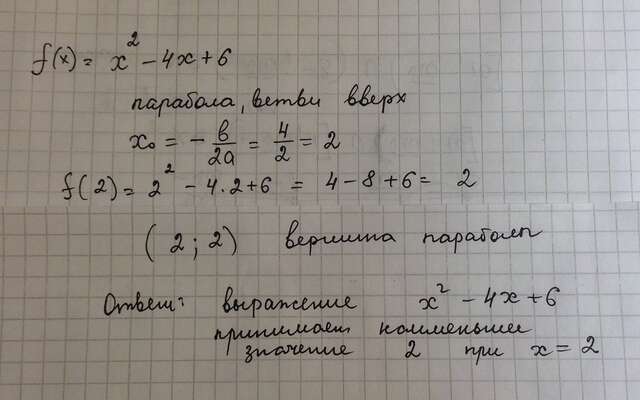 f(x) = x² - 4x + 6
парабола, ветви вверх
x₀ = - в/2a = 4/2 = 2
f(2) = 2² - 4·2+6 = 4-8+6= 2
(2; 2) вершина параболы
Ответ: выражение x² - 4x + 6
принимает наименьшее
значение 2 при x = 2